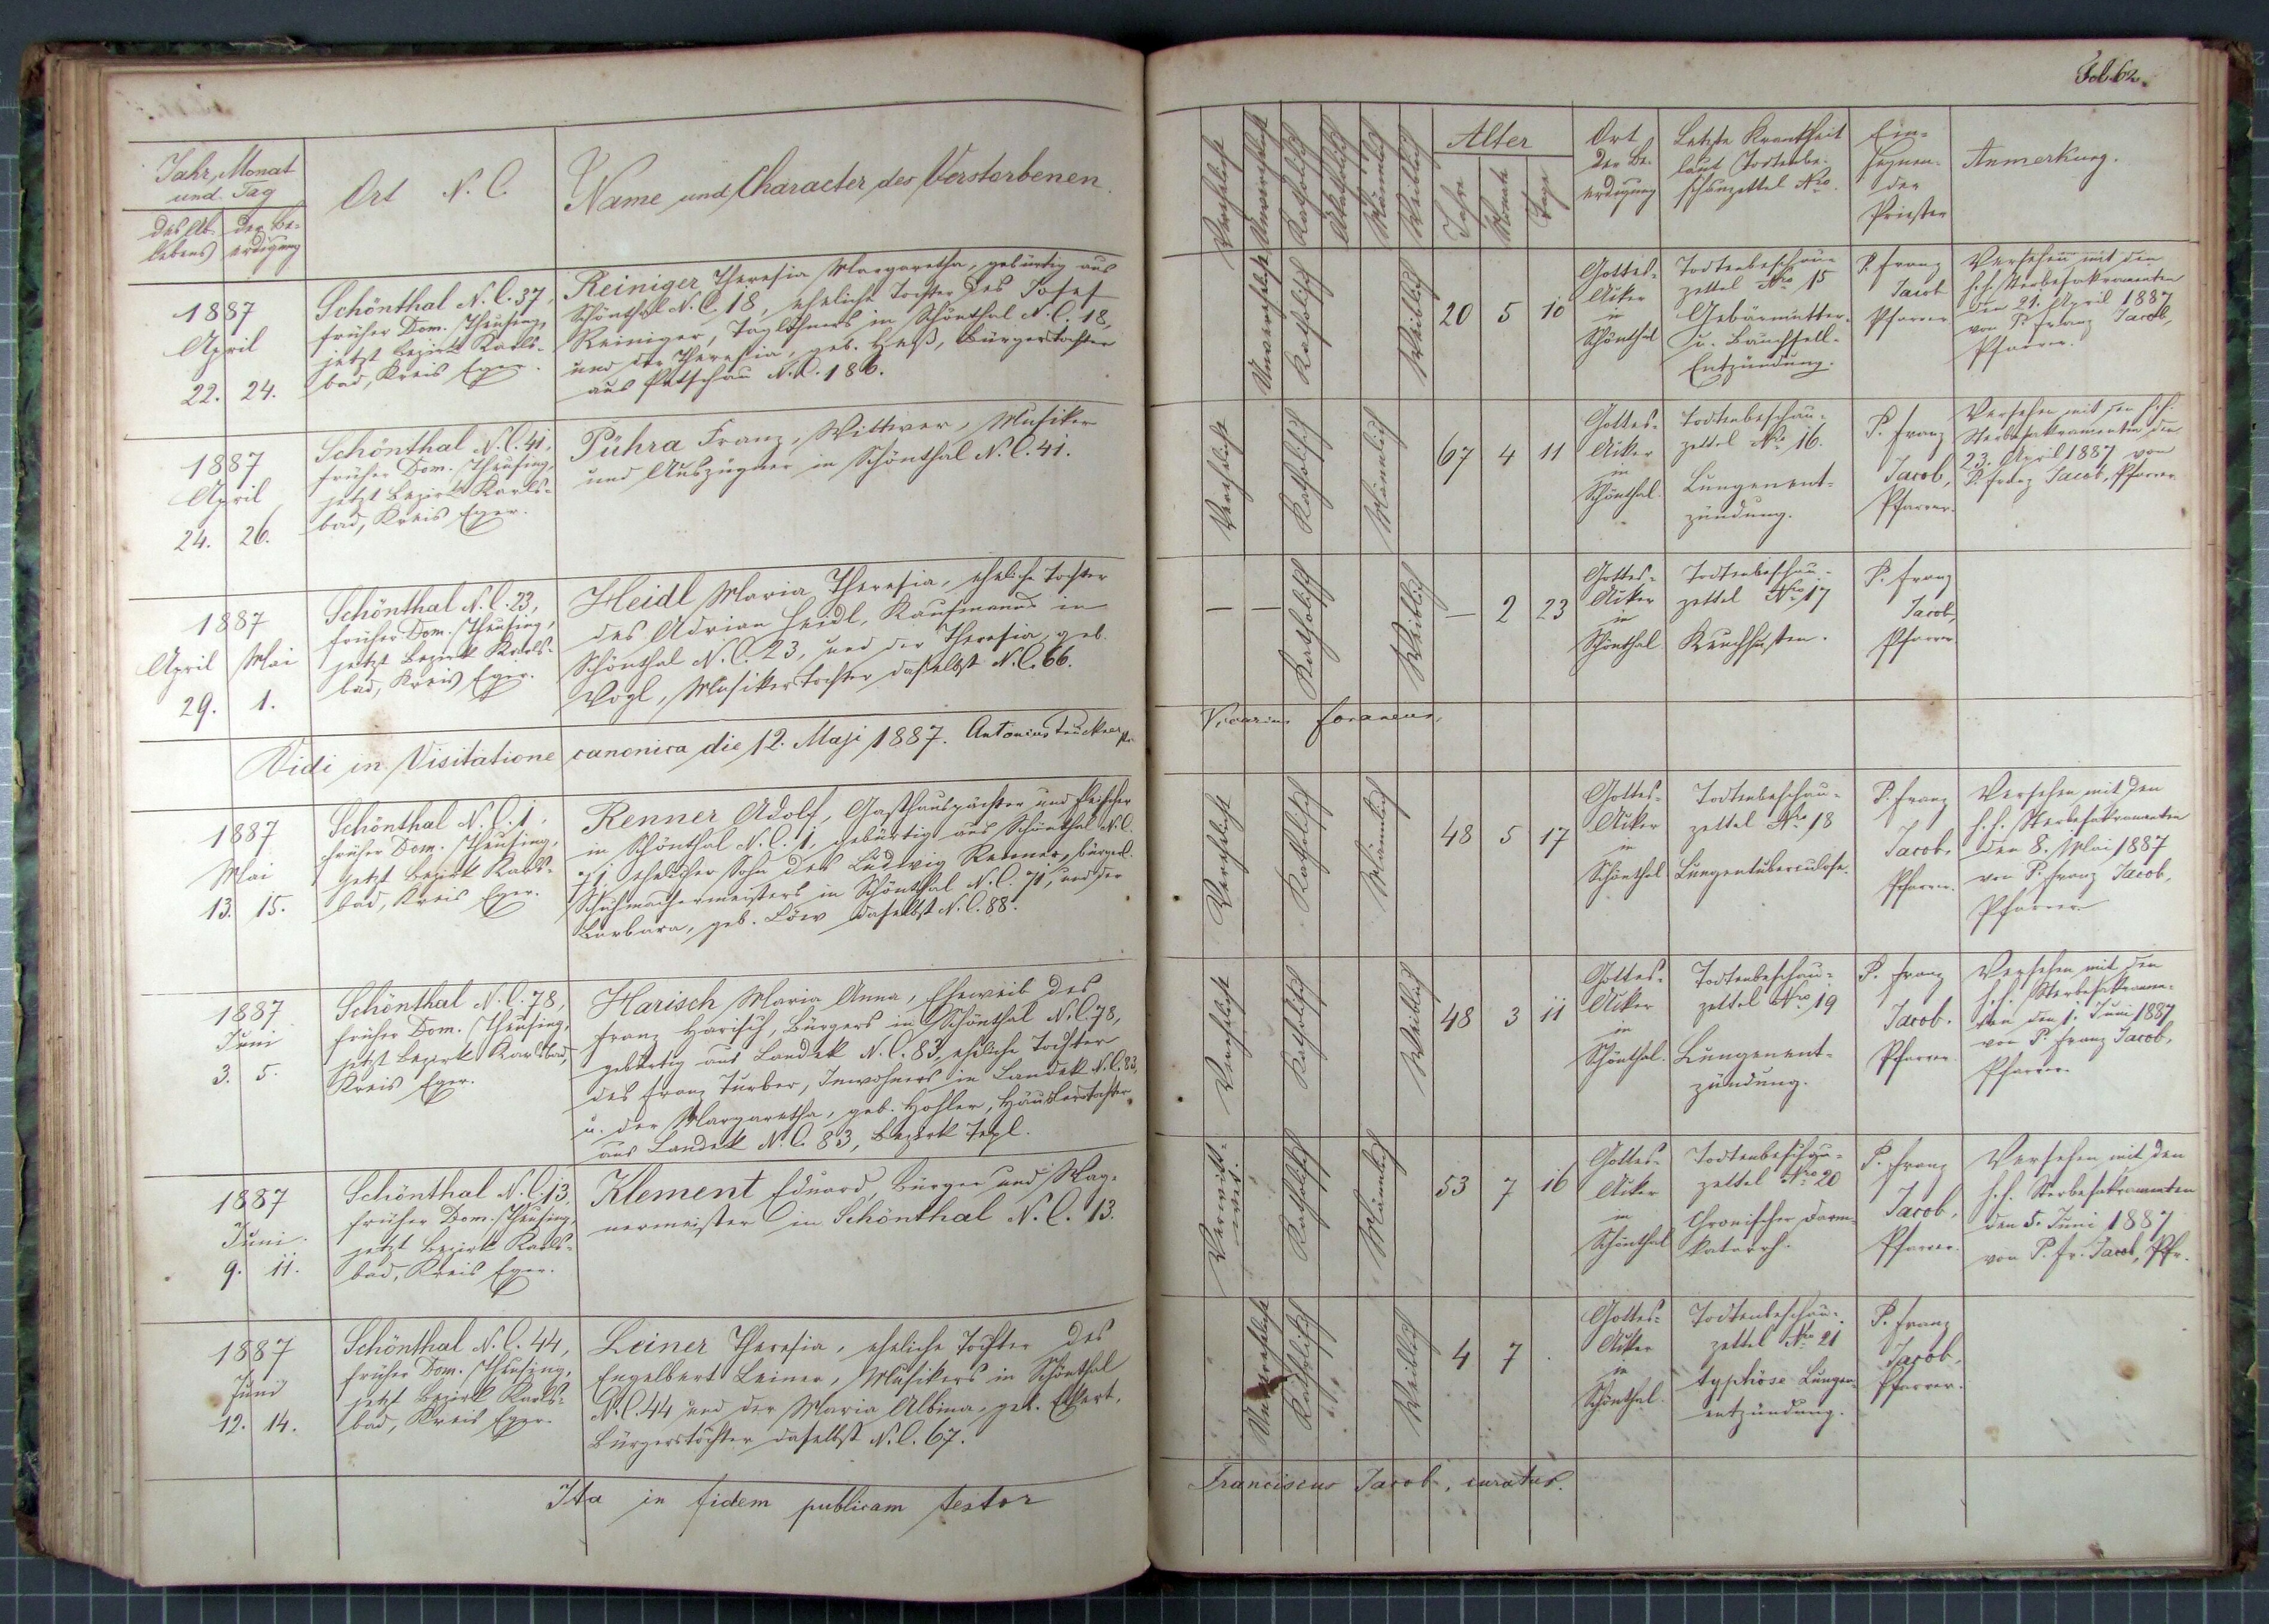 Fol. 62.
Jahr, Monat
und Tag
des Ab-
lebens
der Be-
erdigung
Ort N. C.
Name und Character des Verstorbenen.
Verehelicht
Unverehelicht
Katholisch
Akatholisch
Männlich
Weiblich
Alter
Jahre
Monate
Tage
Ort
der Be-
erdigung
Letzte Krankheit
laut Todtenbe-
schauzettel Nro.
Ein-
segnen-
der
Priester
Anmerkung.
1887
April
22. 24.
Schönthal N. C. 37,
früher Dom. Theusing,
jetzt Bezirk Karls-
bad, Kreis Eger.
Reiniger Theresia Margaretha, gebürtig aus
Schönthal N. C. 18, eheliche Tochter des Josef
Reiniger, Taglöhners in Schönthal N. C. 18,
und der Theresia, geb. Heß, Bürgerstochter
aus Petschau N. C. 186.
Unverehelicht
Katholisch
Weiblich
20 5 10
Gottes-
Acker
in
Schönthal
Todtenbeschau-
zettel Nro 15
Gebärmutter-
u. Bauchfell-
Entzündung.
P. Franz
Jacob
Pfarrer
Versehen mit den
h. h. Sterbesakramenten
den 21. April 1887
von P. Franz Jacob,
Pfarrer.
1887
April
24. 26.
Schönthal N. C. 41,
früher Dom. Theusing,
jetzt Bezirk Karls-
bad, Kreis Eger.
Pühra Franz, Wittwer, Musiker
und Auszügner in Schönthal N. C. 41.
Verehelicht
Katholisch
Männlich
67 4 11
Gottes-
Acker
in
Schönthal.
Todtenbeschau-
zettel Nro 16.
Lungenent-
zündung.
P. Franz
Jacob,
Pfarrer.
Versehen mit den h. h.
Sterbesakramenten den
23. April 1887 von
P. Franz Jacob, Pfarrer.
1887
April Mai
29. 1.
Schönthal N. C. 23,
früher Dom. Theusing,
jetzt Bezirk Karls-
bad, Kreis Eger.
Heidl Maria Theresia, eheliche Tochter
des Adrian Heidl, Kaufmanns in
Schönthal N. C. 23, und der Theresia, geb.
Vogl, Musikerstochter daselbst N. C. 66.
— —
Katholisch
Weiblich
— 2 23
Gottes-
Acker
in
Schönthal
Todtenbeschau-
zettel Nro 17
Keuchhusten.
P. Franz
Jacob,
Pfarrer
Vidi in Visitatione canonica die 12. Maji 1887. Antonius
Vicarius foraneus.
1887
Mai
13. 15.
Schönthal N. C. 1,
früher Dom. Theusing,
jetzt Bezirk Karls-
bad, Kreis Eger.
Renner Adolf, Gasthauspächter und Fleischer
in Schönthal N. C. 1, gebürtig aus Schönthal N. C.
71, ehelicher Sohn des Ludwig Renner, bürgerl.
Schuhmachermeisters in Schönthal N. C. 71, und der
Barbara, geb. Löw daselbst N. C. 88.
Verehelicht
Katholisch
Männlich
48 5 17
Gottes-
Acker
in
Schönthal
Todtenbeschau-
zettel Nro 18
Lungentuberculose.
P. Franz
Jacob,
Pfarrer.
Versehen mit den
h. h. Sterbesakramenten
den 8. Mai 1887
von P. Franz Jacob,
Pfarrer
1887
Juni
3. 5.
Schönthal N. C. 78,
früher Dom. Theusing,
jetzt Bezirk Karlsbad,
Kreis Eger.
Harisch Maria Anna, Eheweib des
Franz Harisch, Bürgers in Schönthal N. C. 78,
gebürtig aus Landek N. C. 83, eheliche Tochter
des Franz Turber, Inwohners in Landek N. C. 83,
u. der Margaretha, geb. Hohler, Häuslerstochter
aus Landek N. C. 83, Bezirk Tepl.
Verehelicht
Katholisch
Weiblich
48 3 11
Gottes-
Acker
in
Schönthal.
Todtenbeschau-
zettel Nro 19
Lungenent-
zündung.
P. Franz
Jacob.
Pfarrer.
Versehen mit den
h. h. Sterbesakramen-
ten den 1. Juni 1887
von P. Franz Jacob,
Pfarrer.
1887
Juni
9. 11.
Schönthal N. C. 13.
früher Dom. Theusing,
jetzt Bezirk Karls-
bad, Kreis Eger.
Klement Eduard, Bürger und Wag-
nermeister in Schönthal N. C. 13.
Verwitt-
wet.
Katholisch
Männlich
53 7 16
Gottes-
Acker
in
Schönthal
Todtenbeschau-
zettel Nro 20
Chronischer Darm-
katarrh.
P. Franz
Jacob,
Pfarrer.
Versehen mit den
h. h. Sterbesakramenten
den 5. Juni 1887
von P. Fr. Jacob, Pfr.
1887
Juni
12. 14.
Schönthal N. C. 44,
früher Dom. Theusing,
jetzt Bezirk Karls-
bad, Kreis Eger.
Leiner Theresia, eheliche Tochter des
Engelbert Leiner, Musikers in Schönthal
N. C. 44 und der Maria Albina, geb. Ekert,
Bürgerstochter daselbst N. C. 67.
Unverehelicht
Katholisch
Weiblich
4 7 .
Gottes-
Acker
in
Schönthal.
Todtenbeschau-
zettel Nro 21
typhöse Lungen-
entzündung.
P. Franz
Jacob,
Pfarrer.
Ita in fidem publicam testor
Franciscus Jacob, curatus.